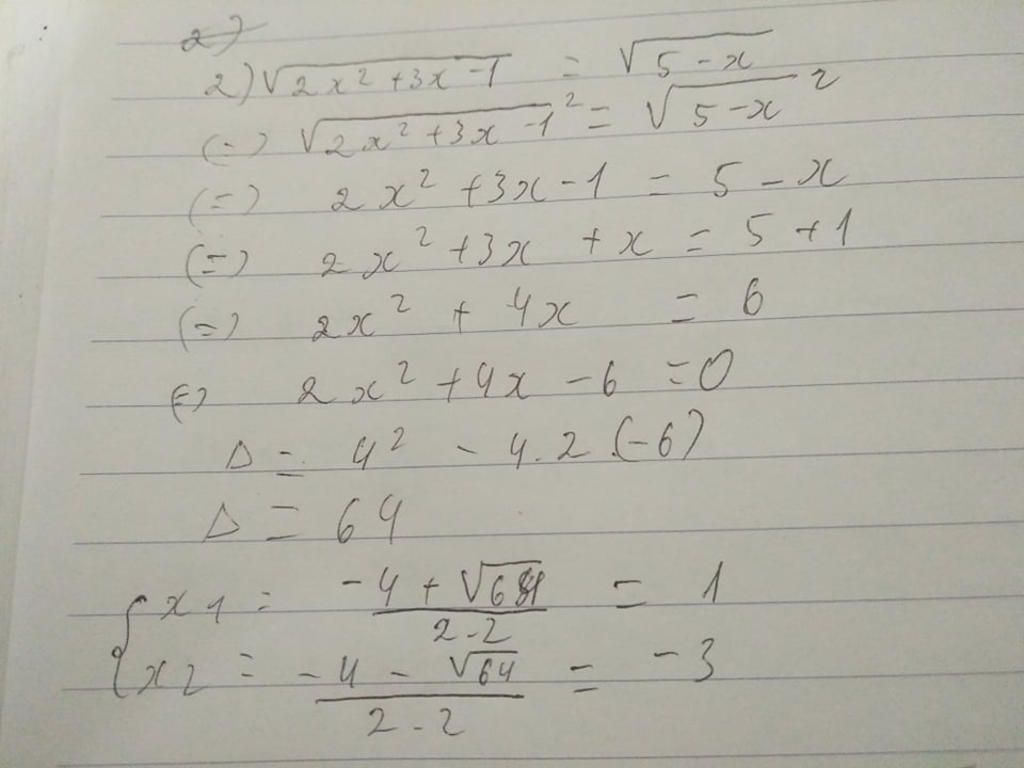 2)
2) √(2x² + 3x - 1) = √(5 - x)
(=) √(2x² + 3x - 1)² = √(5 - x)²
(=) 2x² + 3x - 1 = 5 - x
(=) 2x² + 3x + x = 5 + 1
(=) 2x² + 4x = 6
(=) 2x² + 4x - 6 = 0
Δ = 4² - 4.2.(-6)
Δ = 64
{ x1 = (-4 + √64)/(2.2) = 1
x2 = (-4 - √64)/(2.2) = -3